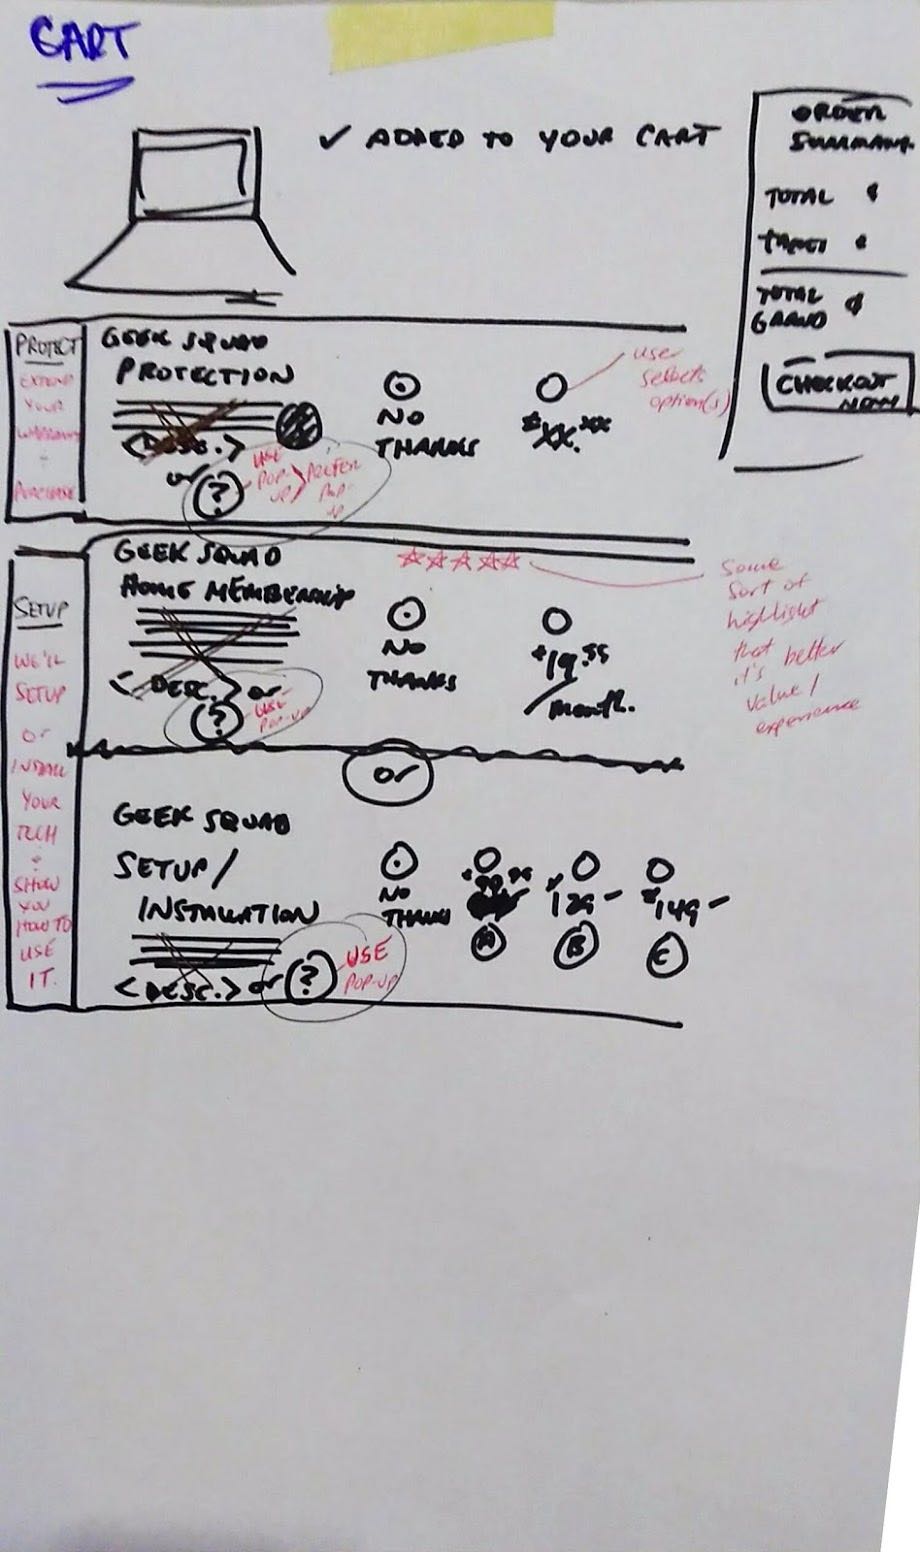 CART
✓ ADDED TO YOUR CART
ORDER
TOTAL $
TOTAL $
GRAND
CHECKOUT
NOW
PROTECT
EXTEND
YOUR
WARRANTY
+
PURCHASE
GEEK SQUAD
PROTECTION
<DESC.>
or
?
USE
POP-
UP
PREFER
POP-
UP
NO
THANKS
$XX.XX
use
selects
option(s)
SETUP
WE'LL
SETUP
or
INSTALL
YOUR
TECH
+
SHOW
YOU
HOW TO
USE
IT.
GEEK SQUAD
HOME MEMBERSHIP
<DESC.> or
?
USE
POP-UP
NO
THANKS
$19.99
/month.
☆☆☆☆☆
Some
Sort of
highlight
that
it's better
value/
experience
or
GEEK SQUAD
SETUP/
INSTALLATION
<DESC.> or
?
USE
POP-UP
NO
THANKS
A
$129 -
B
$149 -
C